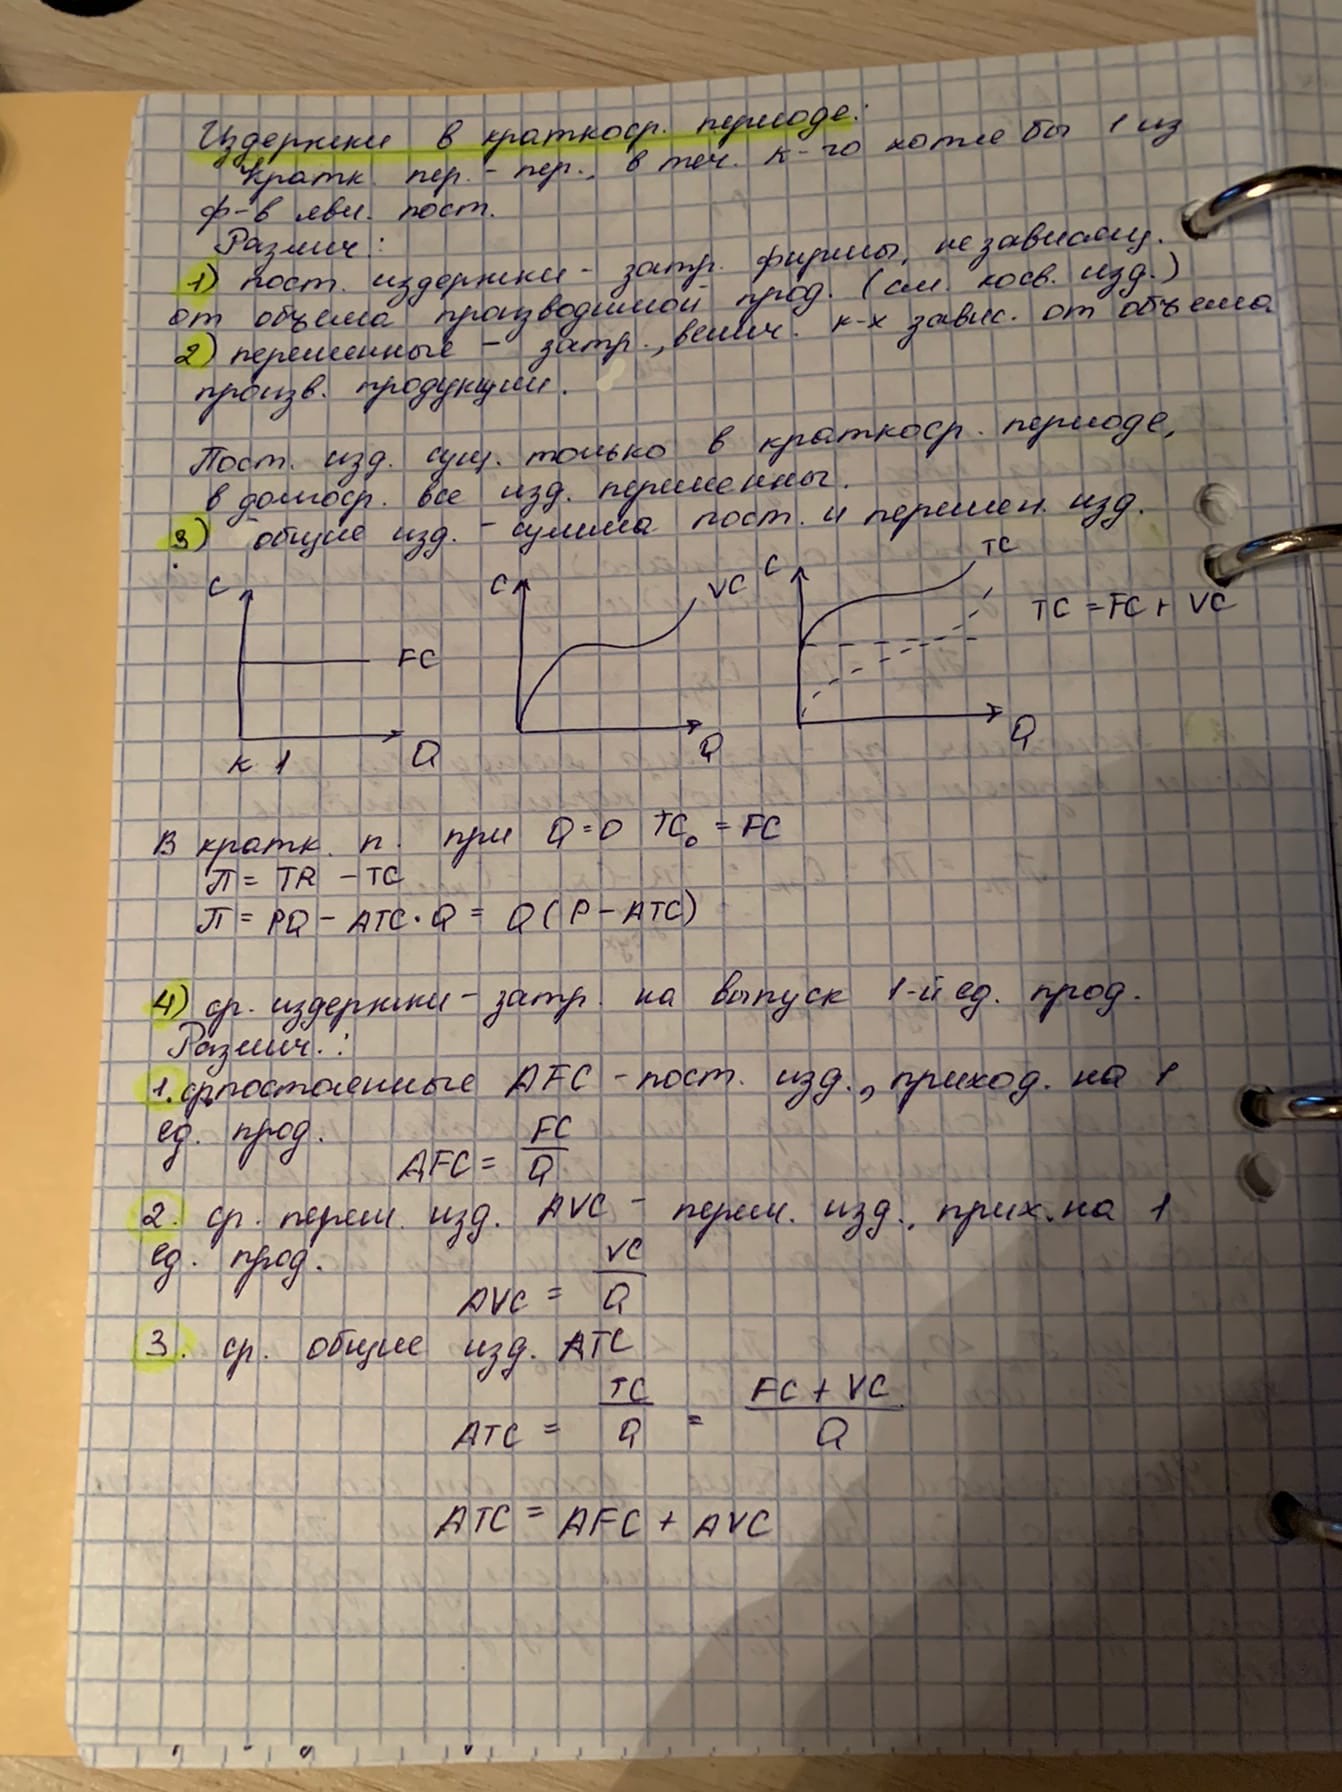 Издержки в краткоср. периоде:
Кратк. пер. - пер., в теч. к-го хотя бы 1 из
ф-в явл. пост.
Различ:
1) пост. издержки - затр. фирмы, независящ.
от объема производимой прод. (см. косв. изд.)
2) переменные - затр., велич. к-х завис. от объема
произв. продукции.
Пост. изд. сущ. только в краткоср. периоде,
в долгоср. все изд. переменны.
3) общие изд. - сумма пост. и перемен. изд.
C FC Q
к 1
C VC Q
C TC Q
TC = FC + VC
В кратк. п. при Q=0 TC₀ = FC
П = TR - TC
П = PQ - ATC · Q = Q (P - ATC)
4) ср. издержки - затр. на выпуск 1-й ед. прод.
Различ.:
1. ср. постоянные AFC - пост. изд., приход. на 1
ед. прод.
AFC = FC / Q
2. ср. перем. изд. AVC - перем. изд., прих. на 1
ед. прод.
AVC = VC / Q
3. ср. общие изд. ATC
ATC = TC / Q = FC + VC / Q
ATC = AFC + AVC